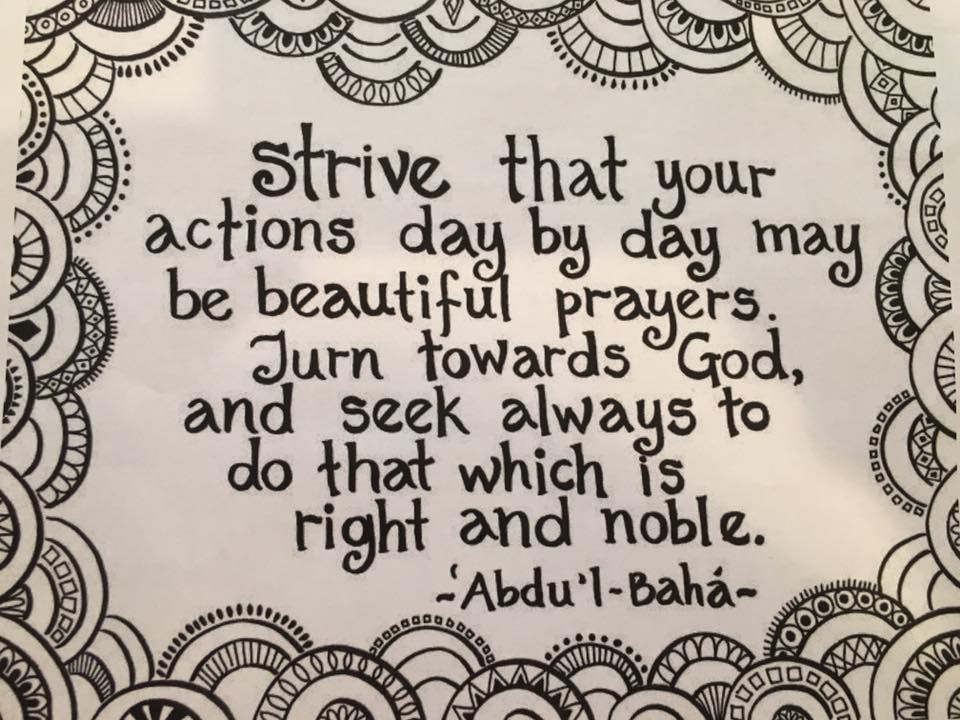 Strive that your
actions day by day may
be beautiful prayers.
Turn towards God,
and seek always to
do that which is
right and noble.
~‘Abdu’l-Bahá~